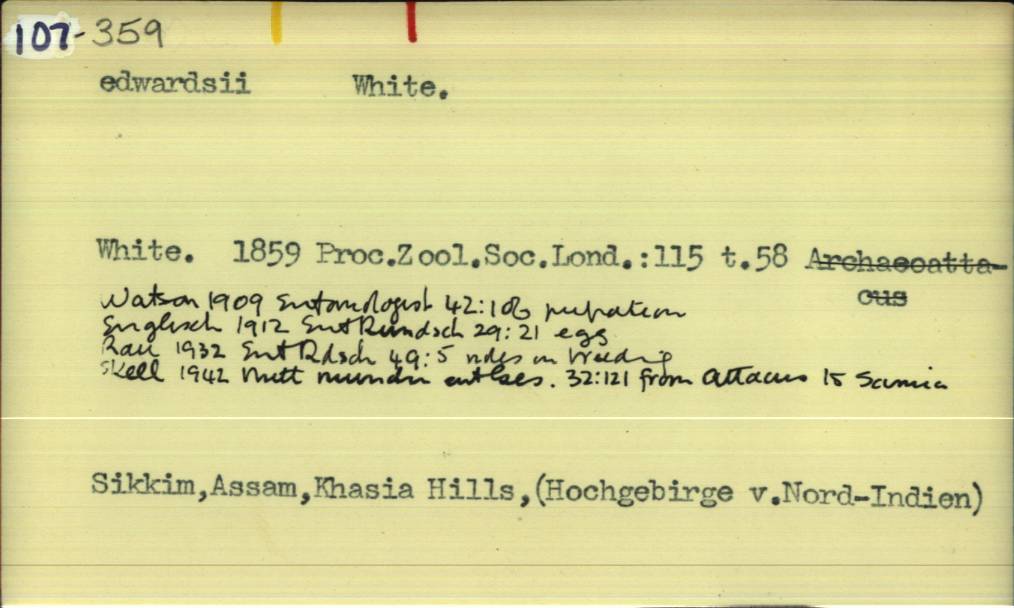 107-359
edwardsii White.
White. 1859 Proc.Zool.Soc.Lond.:115 t.58 Archaeoatta-
cus
Watson 1909 Entomologist 42:106 pupation
Englisch 1912 Ent Rundsch 29:21 egg
Rau 1932 Ent Rdsch 49:5 notes on breeding
Skell 1942 Mitt munchn ent Ges. 32:121 from Attacus to Samia
Sikkim,Assam,Khasia Hills,(Hochgebirge v.Nord-Indien)